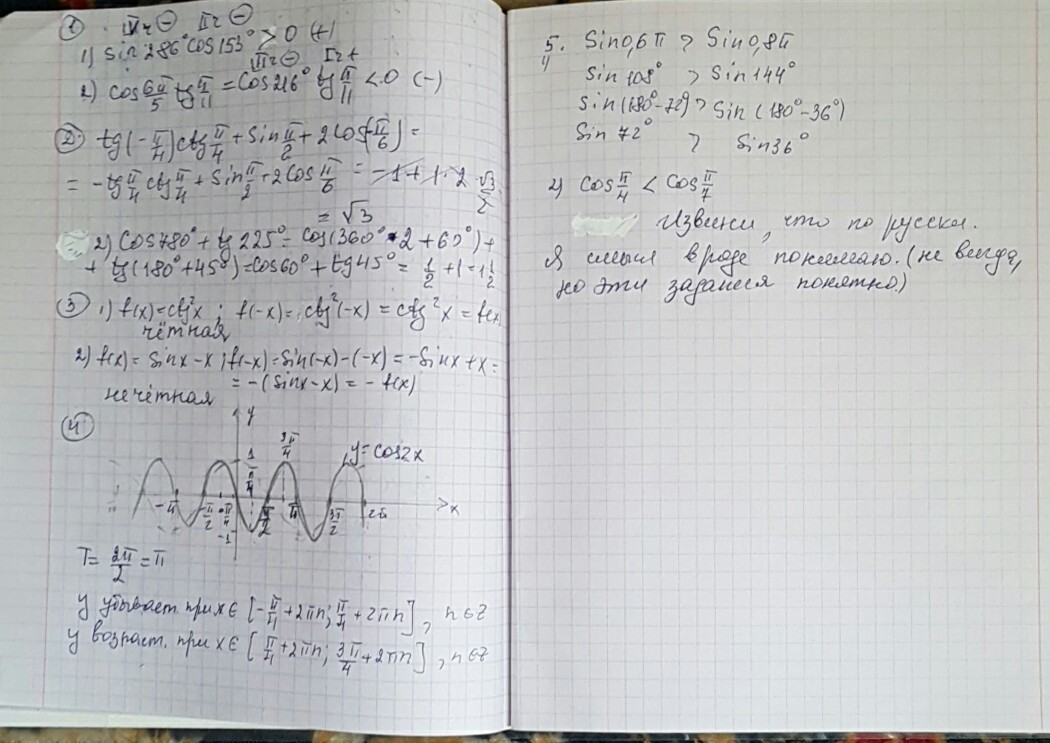 ① IVч ⊖ IIч ⊖
1) sin 286° cos 153° > 0 (+)
IIIч ⊖ Iч +
2) cos 6π/5 tg π/11 = cos 216° tg π/11 < 0 (-)
② tg(-π/4) ctg π/4 + sin π/2 + 2 cos(-π/6) =
= -tg π/4 ctg π/4 + sin π/2 + 2 cos π/6 = -1 + 1 + 2 · √3/2
= √3
2) cos 780° + tg 225° = cos(360° · 2 + 60°) +
+ tg(180° + 45°) = cos 60° + tg 45° = 1/2 + 1 = 1 1/2
③ 1) f(x) = ctg²x ; f(-x) = ctg²(-x) = ctg²x = f(x)
чётная
2) f(x) = sin x - x ; f(-x) = sin(-x) - (-x) = -sin x + x =
= -(sin x - x) = -f(x)
нечётная
④
y
1 π/4 3π/4 y = cos2x
-π -π/2 -π/4 π/2 π 3π/2 2π x
-1
T = 2π/2 = π
y убывает при x ∈ [-π/4 + 2πn; π/4 + 2πn], n ∈ Z
y возраст. при x ∈ [π/4 + 2πn; 3π/4 + 2πn], n ∈ Z
5. sin 0,6π > sin 0,8π
1)
sin 108° > sin 144°
sin(180° - 72°) > sin(180° - 36°)
sin 72° > sin 36°
2) cos π/4 < cos π/7
Извини, что по русски.
Я смысл вроде понимаю. (не всегда,
но эти задания понятно.)